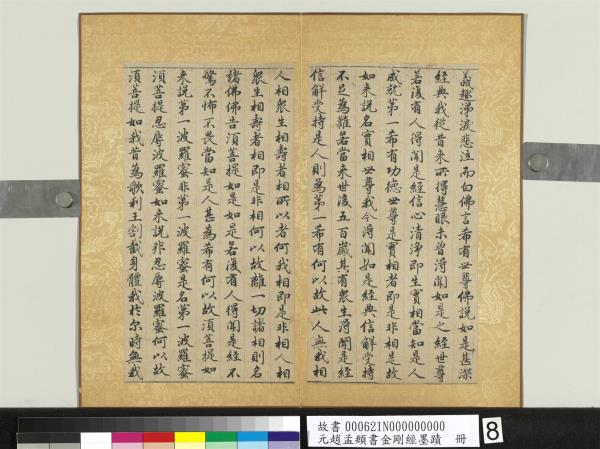 義趣涕淚悲泣而白佛言希有世尊佛說如是甚深
經典我從昔來所得慧眼未曾得聞如是之經世尊
若復有人得聞是經信心清淨即生實相當知是人
成就第一希有功德世尊是實相者即是非相是故
如來說名實相世尊我今得聞如是經典信解受持
不足為難若當來世後五百歲其有衆生得聞是經
信解受持是人則為第一希有何以故此人無我相
人相衆生相壽者相所以者何我相即是非相人相
衆生相壽者相即是非相何以故離一切諸相則名
諸佛佛告須菩提如是如是若復有人得聞是經不
驚不怖不畏當知是人甚為希有何以故須菩提如
來說第一波羅蜜非第一波羅蜜是名第一波羅蜜
須菩提忍辱波羅蜜如來說非忍辱波羅蜜何以故
須菩提如我昔為歌利王割截身體我於尒時無我
故書 000621N000000000
元趙孟頫書金剛經墨蹟 冊
8